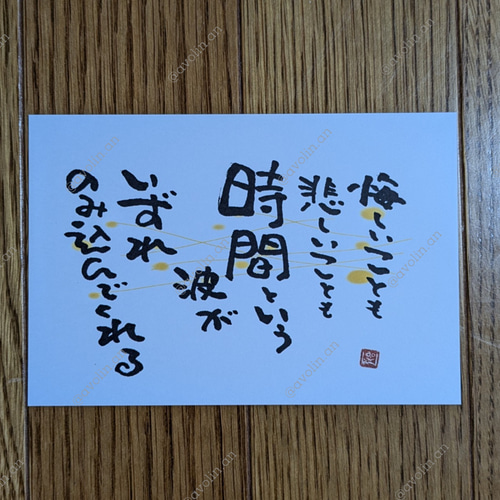 悔しいことも
悲しいことも
時間という
波が
いずれ
のみ込んでくれる